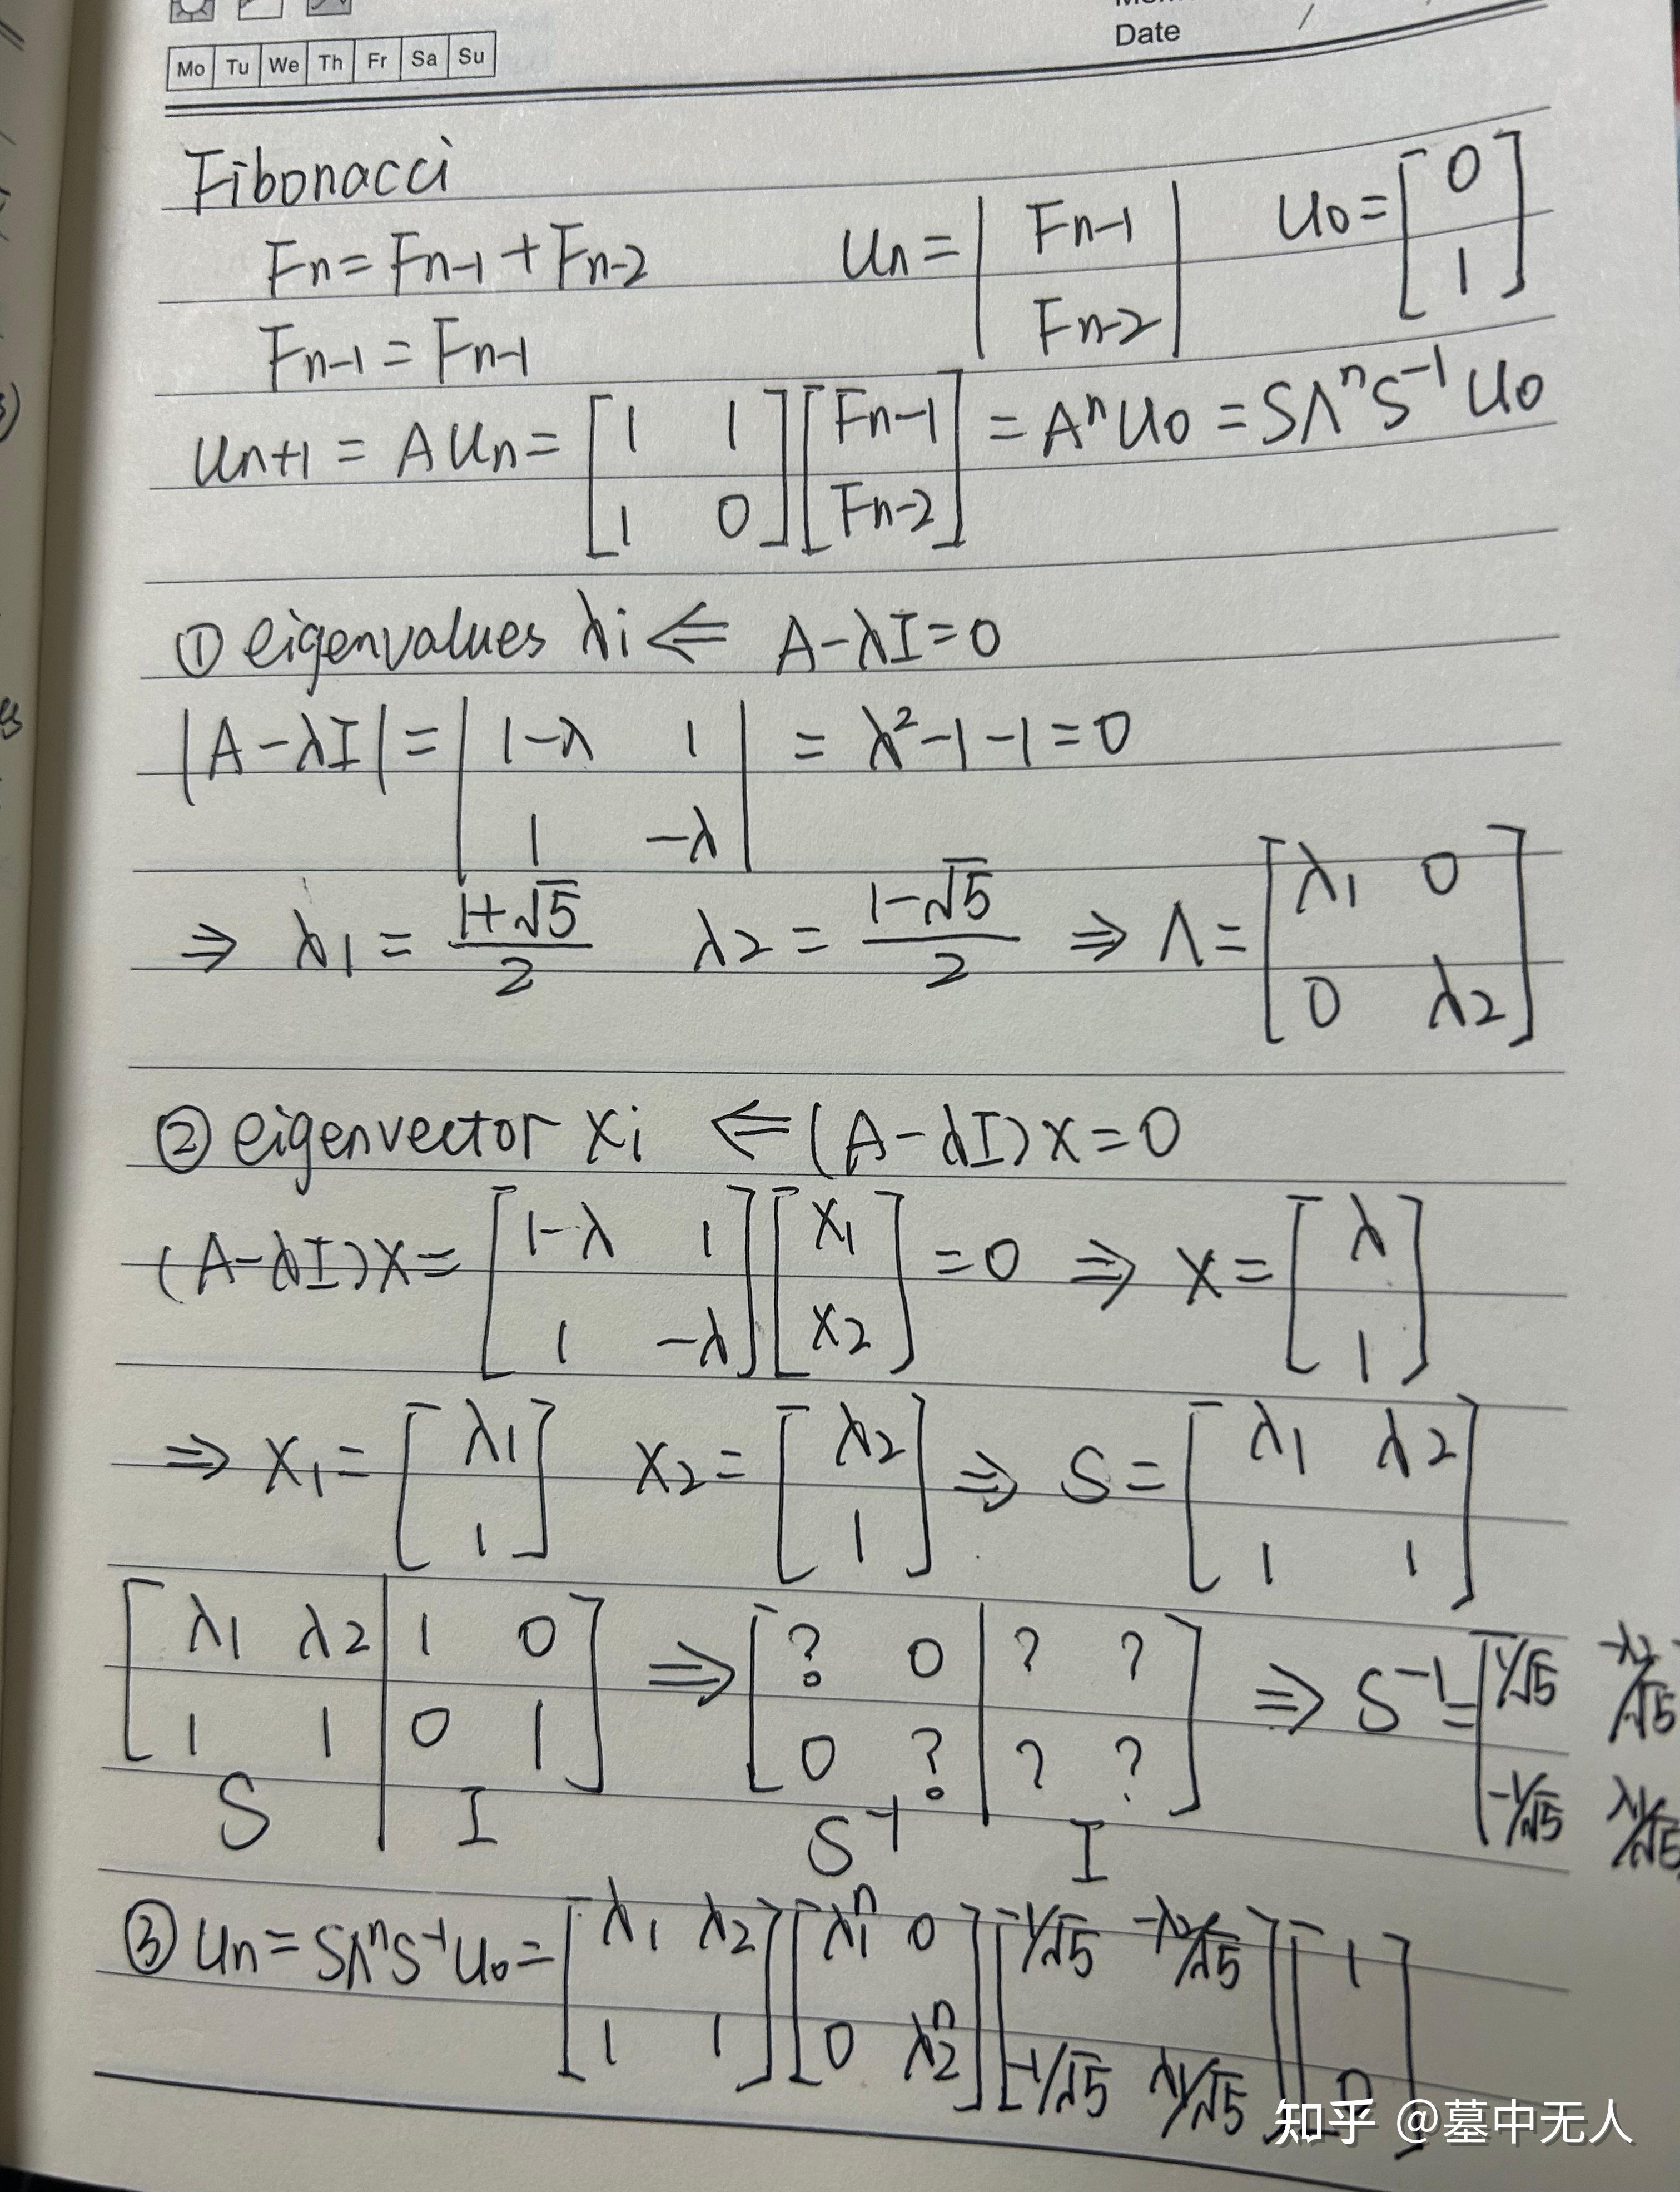 Date /
Mo Tu We Th Fr Sa Su
Fibonacci
Fn = Fn-1 + Fn-2 Un = | Fn-1 Fn-2 | U0 = [ 0 1 ]
Fn-1 = Fn-1
Un+1 = AUn = [ 1 1 1 0 ] [ Fn-1 Fn-2 ] = AⁿU0 = SΛⁿS⁻¹U0
① eigenvalues λi ⇐ A-λI=0
|A-λI| = | 1-λ 1 1 -λ | = λ²-1-1=0
⇒ λ1 = (1+√5)/2 λ2 = (1-√5)/2 ⇒ Λ = [ λ1 0 0 λ2 ]
② eigenvector xi ⇐ (A-λI)x=0
(A-λI)x = [ 1-λ 1 1 -λ ] [ x1 x2 ] = 0 ⇒ x = [ λ 1 ]
⇒ x1 = [ λ1 1 ] x2 = [ λ2 1 ] ⇒ S = [ λ1 λ2 1 1 ]
[ λ1 λ2 | 1 0
1 1 | 0 1 ] ⇒ [ ? 0 | ? ?
0 ? | ? ? ] ⇒ S⁻¹ = [ 1/√5 -λ2/√5
-1/√5 λ1/√5
S I S⁻¹ I
③ Un = SΛⁿS⁻¹U0 = [ λ1 λ2 1 1 ] [ λ1ⁿ 0 0 λ2ⁿ ] [ 1/√5 -λ2/√5 -1/√5 λ1/√5 ] [ 1 0 ]
知乎 @墓中无人